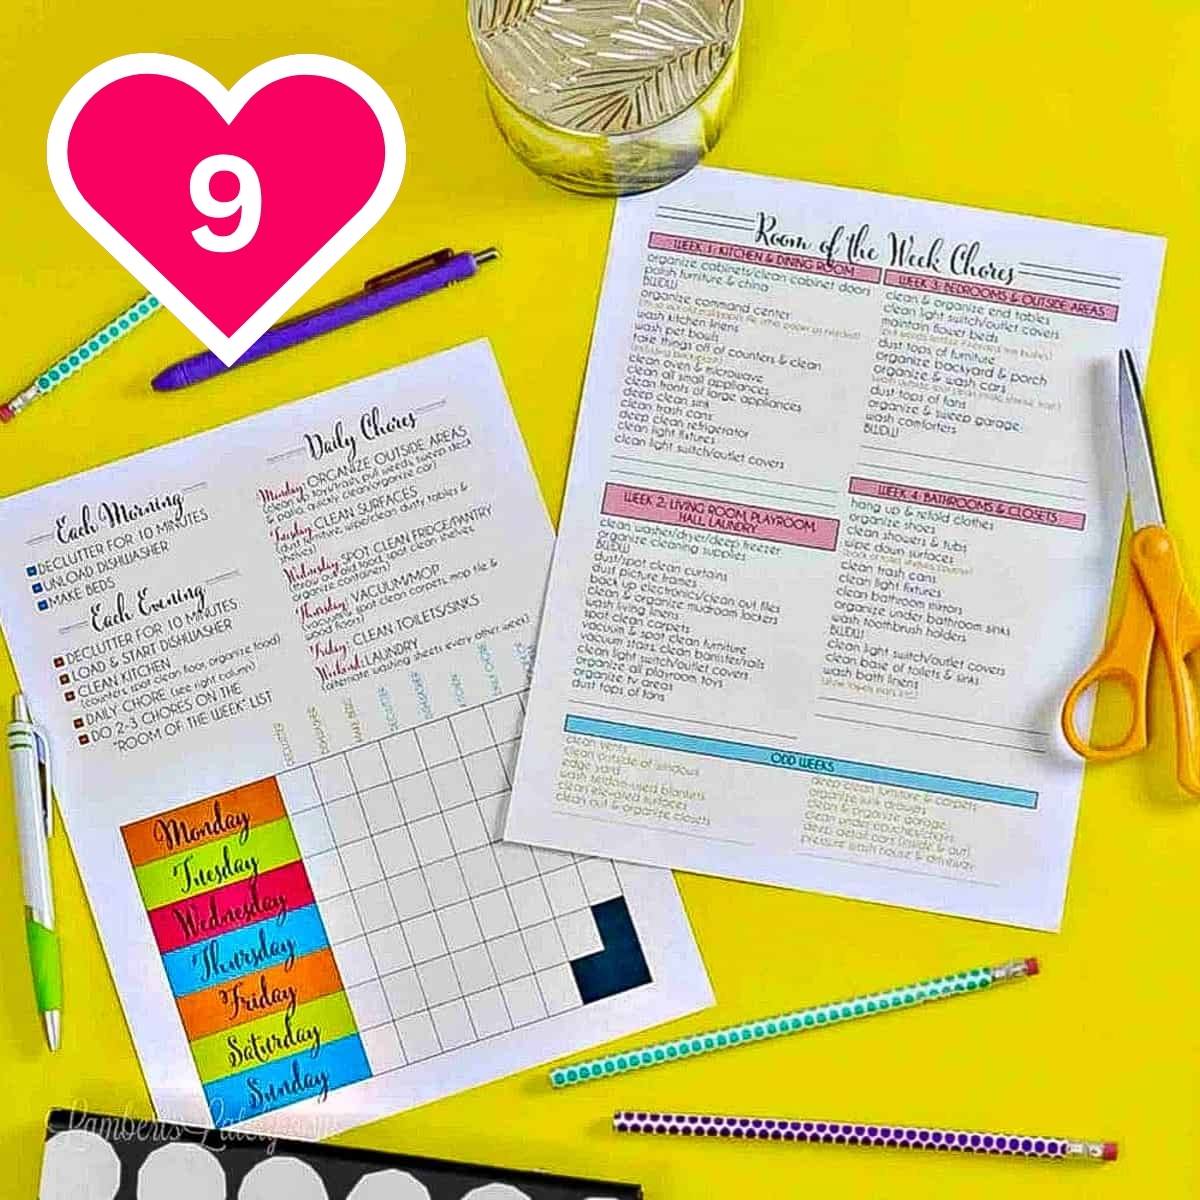 9
Each Morning
DECLUTTER FOR 10 MINUTES
UNLOAD DISHWASHER
MAKE BEDS
Each Evening
DECLUTTER FOR 10 MINUTES
LOAD & START DISHWASHER
CLEAN KITCHEN
(counters, spot clean floor, organize food)
DAILY CHORE (see right column)
DO 2-3 CHORES ON THE
"ROOM OF THE WEEK" LIST
Daily Chores
Monday: ORGANIZE OUTSIDE AREAS
(clean up toys/trash, pull weeds, sweep deck
& patio, quickly clean/organize car)
Tuesday: CLEAN SURFACES
(dust furniture, wipe/clean dusty tables &
shelves)
Wednesday: SPOT CLEAN FRIDGE/PANTRY
(throw out old food, spot clean shelves,
organize containers)
Thursday: VACUUM/MOP
(vacuum & spot clean carpets, mop tile &
wood floors)
Friday: CLEAN TOILETS/SINKS
Weekend: LAUNDRY
(alternate washing sheets every other week)
Monday
Tuesday
Wednesday
Thursday
Friday
Saturday
Sunday
Room of the Week Chores
WEEK 1: KITCHEN & DINING ROOM
organize cabinets/clean cabinet doors
polish furniture & china
BWDW
organize command center
wash kitchen linens
wash pet bowls
take things off of counters & clean
clean oven & microwave
clean all small appliances
clean fronts of large appliances
deep clean sink
clean trash cans
deep clean refrigerator
clean light fixtures
clean light switch/outlet covers
WEEK 2: LIVING ROOM, PLAYROOM,
HALL, LAUNDRY
clean washer/dryer/deep freezer
organize cleaning supplies
BWDW
dust/spot clean curtains
dust picture frames
back up electronics/clean out files
clean & organize mudroom lockers
wash living linens
spot clean carpets
vacuum & spot clean furniture
vacuum stairs, clean banister/rails
clean light switch/outlet covers
organize all playroom toys
organize tv areas
dust tops of fans
WEEK 3: BEDROOMS & OUTSIDE AREAS
clean & organize end tables
clean light switch/outlet covers
maintain flower beds
dust tops of furniture
organize backyard & porch
organize & wash cars
dust tops of fans
organize & sweep garage
wash comforters
BWDW
WEEK 4: BATHROOMS & CLOSETS
hang up & refold clothes
organize shoes
clean showers & tubs
wipe down surfaces
clean trash cans
clean light fixtures
clean bathroom mirrors
organize under bathroom sinks
wash toothbrush holders
BWDW
clean light switch/outlet covers
clean base of toilets & sinks
wash bath linens
ODD WEEKS
clean vents
clean outside of windows
edge yard
wash seldom-used blankets
clean little-used surfaces
clean out & organize closets
deep clean furniture & carpets
organize junk drawers
clean & organize garage
clean under couch/chairs
deep detail cars (inside & out)
pressure wash house & driveway